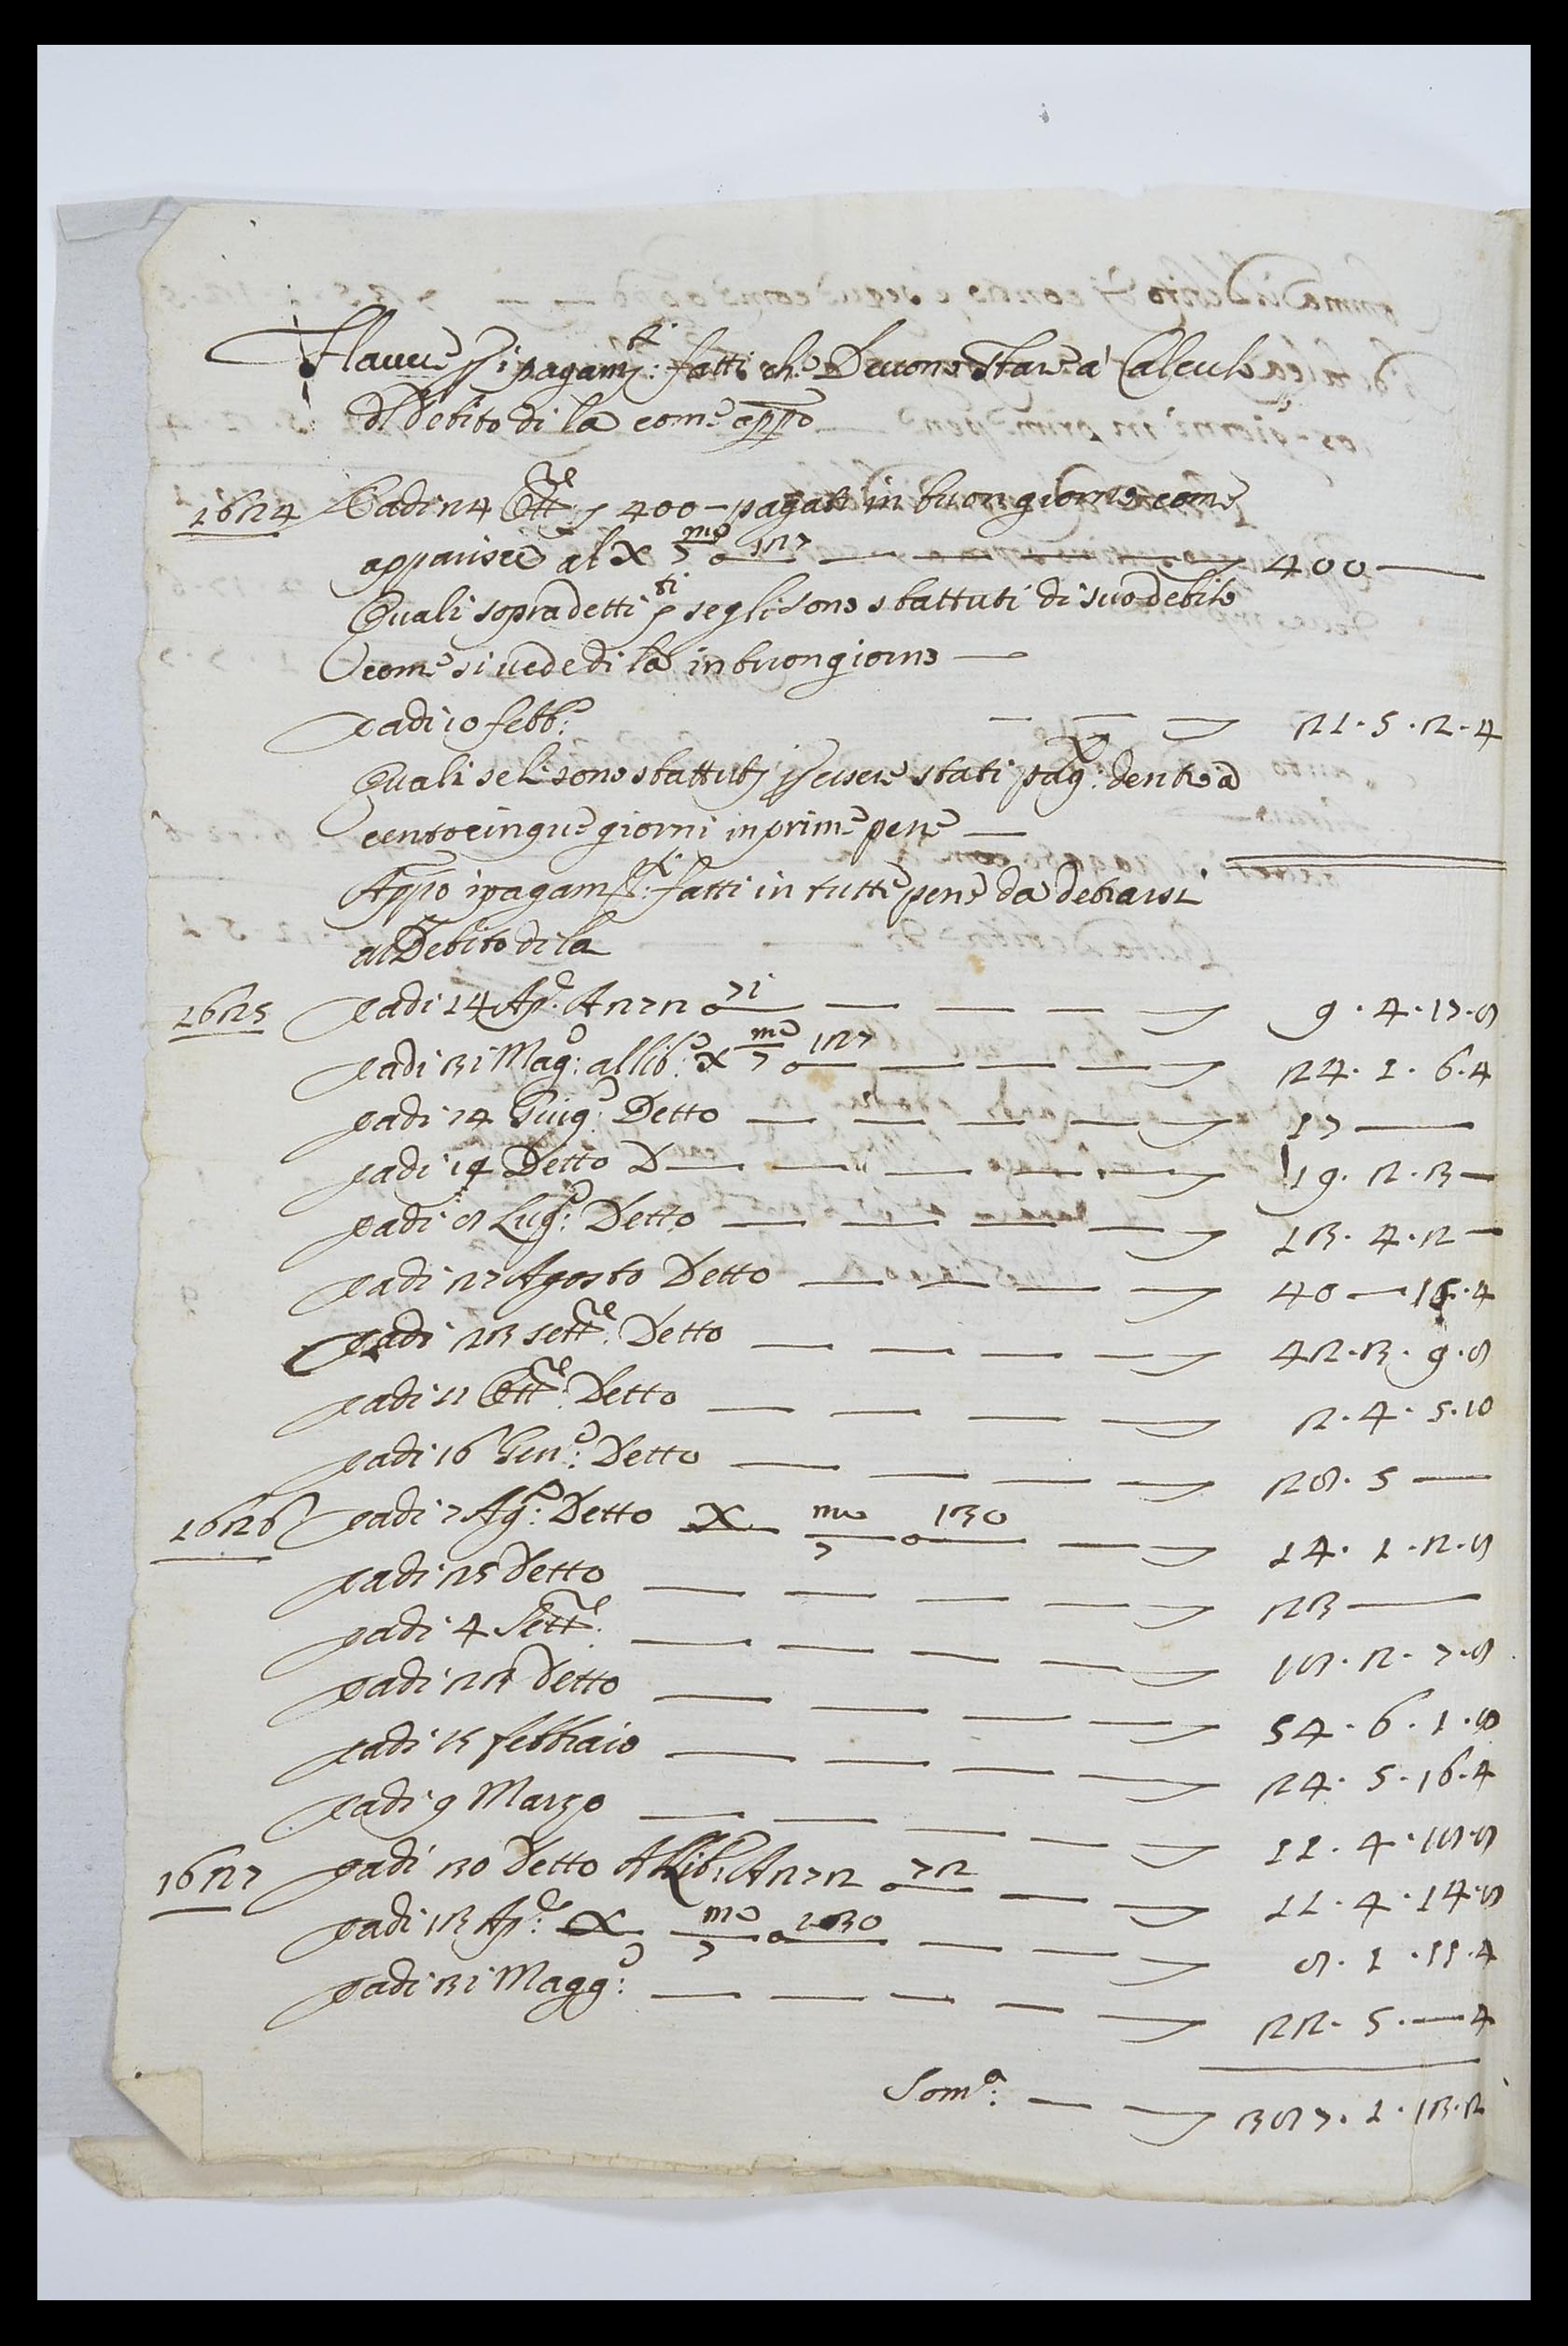 Havere p i pagam.ti fatti ch.e Devono stare à Calculo
al Debito di la come appo
1624 E adi 24 Ott.e ∇ 400 – pagati in buon giorno come
apparisce al X mo 7 o 127 — — — — 400 —
Quali sopradetti ∇ti segli sono sbattuti di suo debito
come si vede di la in buon giorno —
E adi 10 febb.o — — — 21 . 5 . 2 . 4
Quali seli sono sbattuti p essere stati pag.ti dentro a
cento cinque giorni in prime pene —
Appo i pagam.ti fatti in tutte pene da detrarsi
al Debito di la
1625 E adi 14 Ap.e A 272 o 71 — — — — 9 . 4 . 17 . 8
E adi 31 Mag.o al lib.o X mo 7 o 127 — — — — 24 . 1 . 6 . 4
E adi 14 Giug.o Detto — — — — — 17 —
E adi 19 Detto D — — — — — 19 . 2 . 3 —
E adi 8 Lug.o Detto — — — — 13 . 4 . 2 —
E adi 27 Agosto Detto — — — — 40 — 15 . 4
E adi 23 sett.e Detto — — — — 42 . 3 . 9 . 8
E adi 11 Ott.e Detto — — — — 2 . 4 . 5 . 10
E adi 16 Gen.o Detto — — — — 28 . 5 —
1626 E adi 7 Ag.o Detto X mo 7 o 130 — — 14 . 1 . 2 . 8
E adi 25 Detto — — — — — 23 —
E adi 4 Sett.e — — — — — 18 . 2 . 7 . 8
E adi Detto — — — — — 54 . 6 . 1 . 8
E adi 15 febbraio — — — — — 24 . 5 . 16 . 4
E adi 9 Marzo — — — — — 11 . 4 . 18 . 8
1627 E adi 30 Detto A Lib.o A 272 o 72 — — 11 . 4 . 14 . 8
E adi 13 Ap.e X mo 7 o 130 — — — 8 . 1 . 11 . 4
E adi 31 Magg.o — — — — — 22 . 5 . — 4
Som.a — — 387 . 1 . 13 . 2